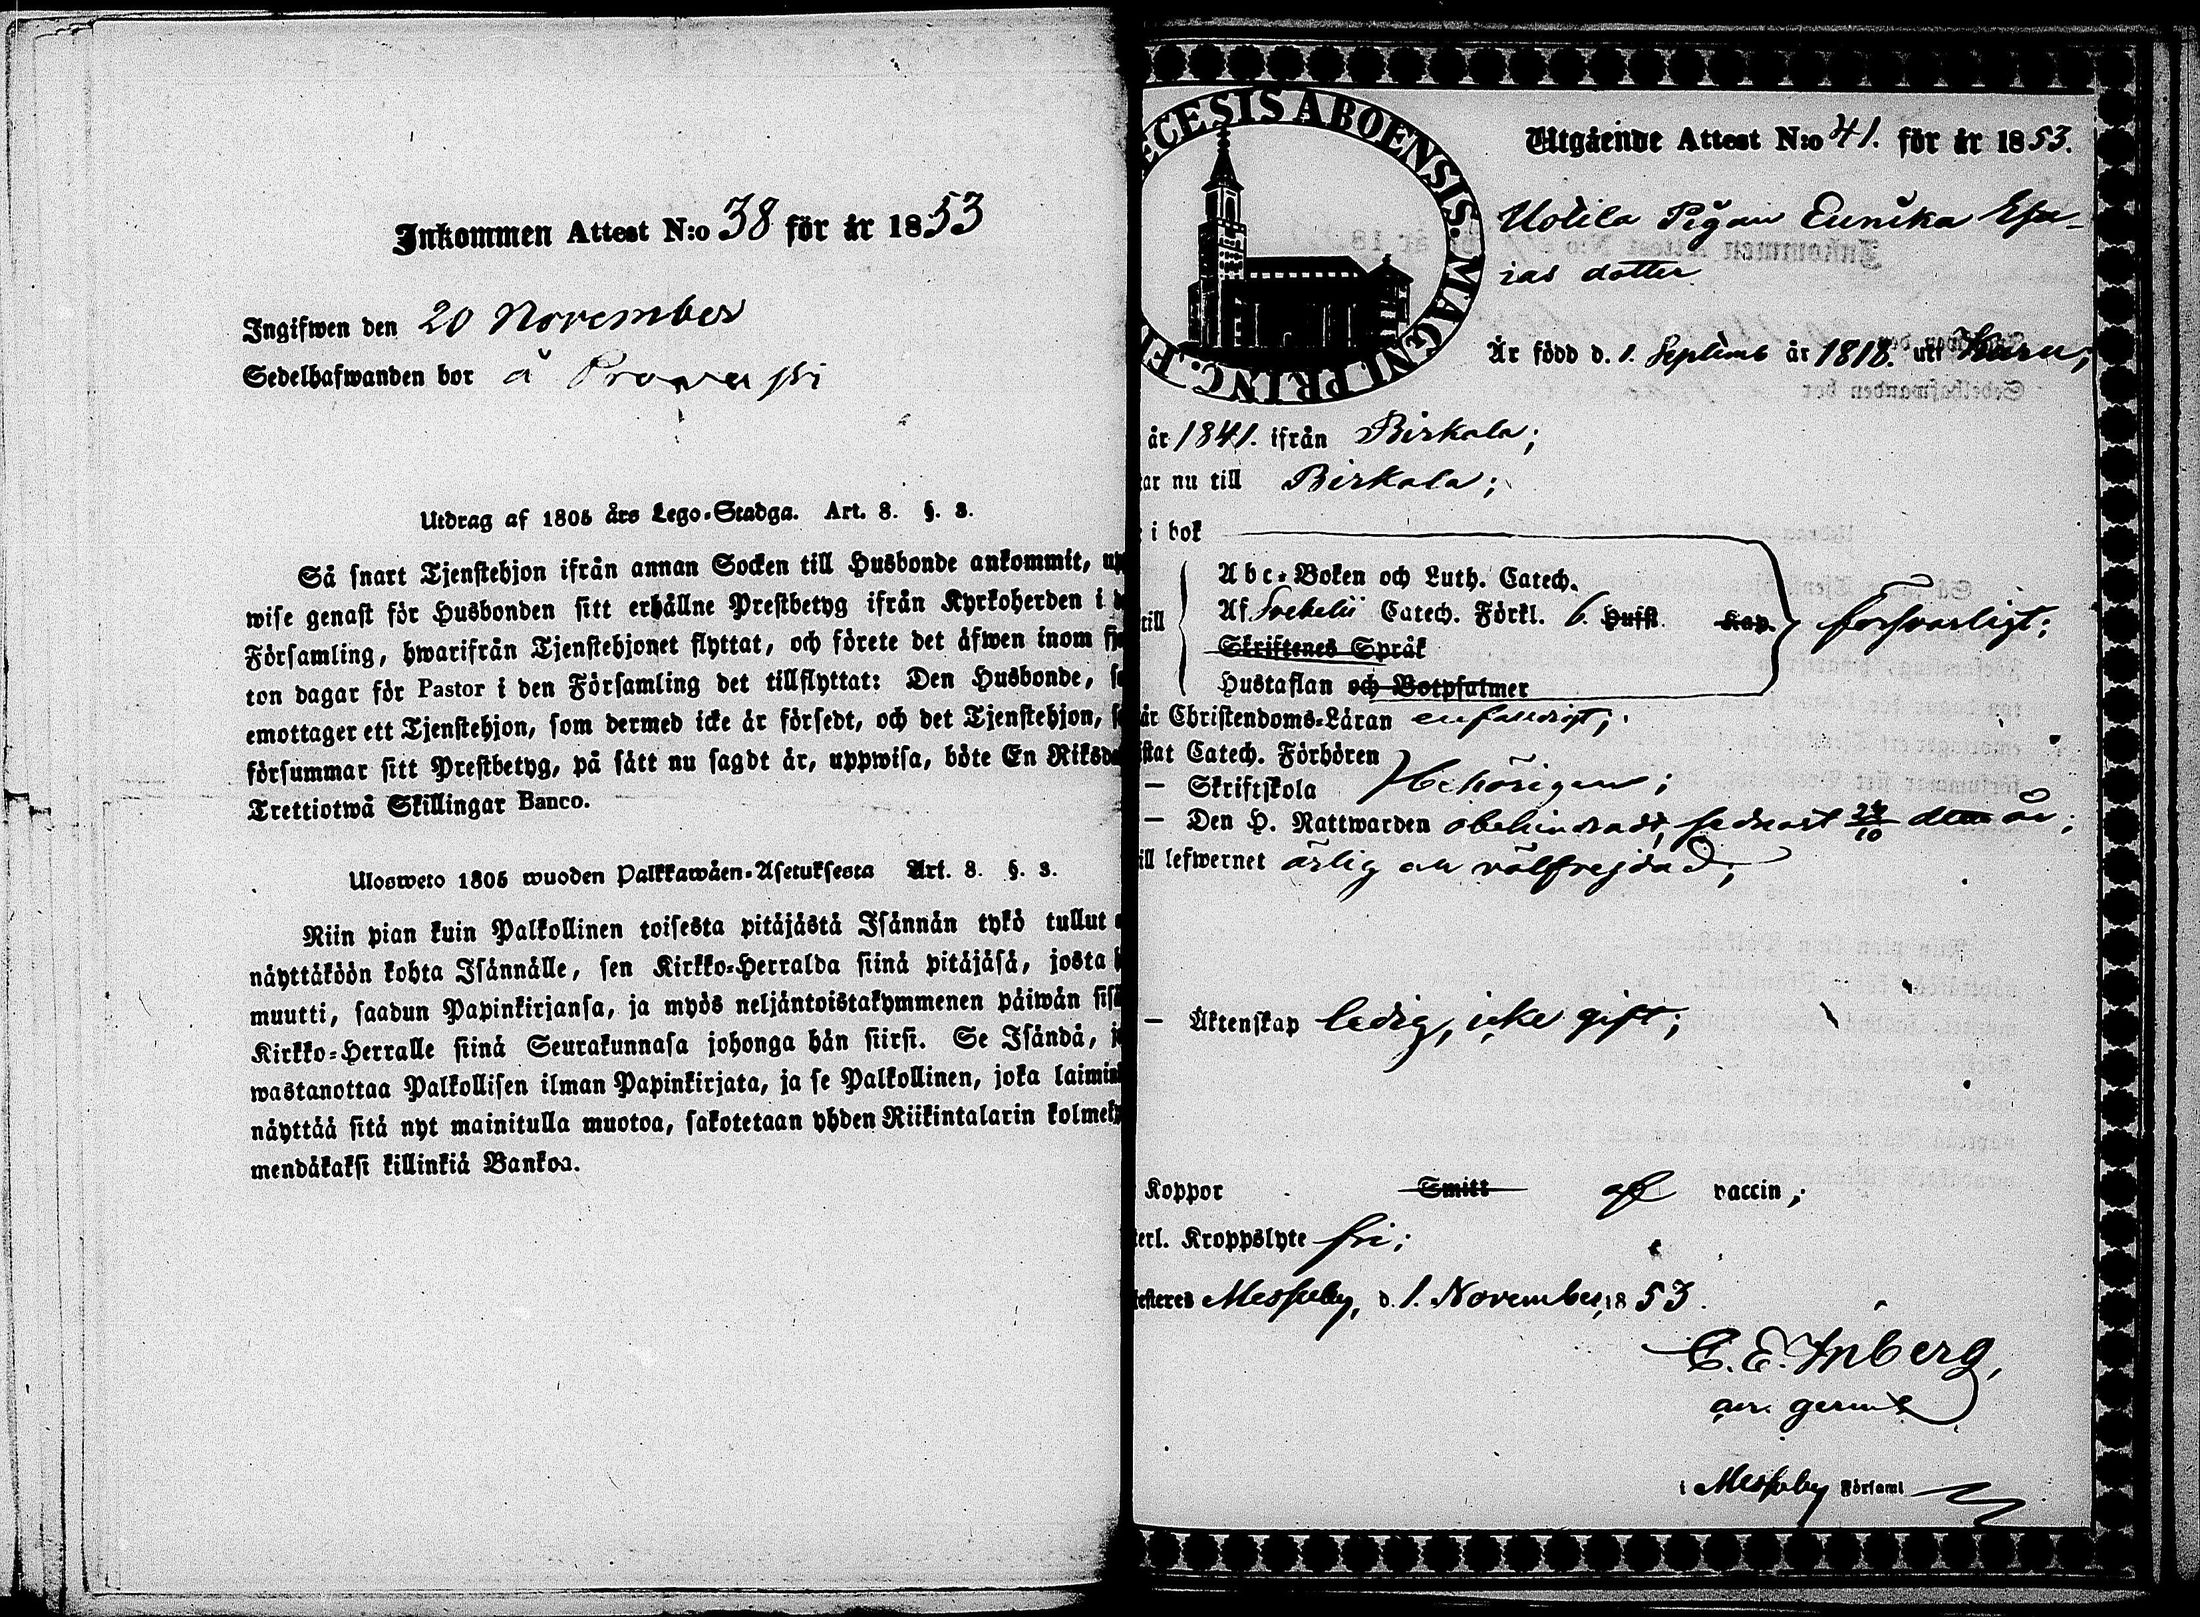 Inkommen Attest N:o 38 för år 1853
Ingifwen den 20 November
Sedelhafwanden bor å
Utdrag af 1805 års Lego-Stadga. Art. 8. §. 3.
Så snart Tjenstehjon ifrån annan Socken till Husbonde ankommit, up
wise genast för Husbonden sitt erhållne Prestbetyg ifrån Kyrkoherden i d
Församling, hwarifrån Tjenstehjonet flyttat, och förete det äfwen inom fjo
ton dagar för Pastor i den Församling det tillflyttat: Den Husbonde, s
emottager ett Tjenstehjon, som dermed icke är försedt, och det Tjenstehjon, s
försummar sitt Prestbetyg, på sätt nu sagdt är, uppwisa, böte En Riksda
Trettiotwå Skillingar Banco.
Ulosweto 1805 wuoden Palkkawäen-Asetuksesta Art. 8. §. 3.
Niin pian kuin Palkollinen toisesta pitäjästä Isännän tykö tullut o
näyttäköön kohta Isännälle, sen Kirkko-Herralda siinä pitäjäsä, josta h
muutti, saadun Papinkirjansa, ja myös neljäntoistakymmenen päiwän sisä
Kirkko-Herralle siinä Seurakunnasa johonga hän siirsi. Se Isändä, jo
wastanottaa Palkollisen ilman Papinkirjata, ja se Palkollinen, joka laimin
näyttää sitä nyt mainitulla muotoa, sakotetaan yhden Riikintalarin kolmek
mendäkaksi killinkiä Bankoa.
ECESIS ABOENSIS. MAGNI. PRINC. F
Utgående Attest N:o 41. för år 1853.
Uotila Pigan Eunika Esa-
ias dotter
Är född d. 1. Septemb år 1818. uti Kuru;
år 1841. ifrån Birkala;
tar nu till Birkala;
i bok
till
Abc-Boken och Luth. Catech.
Af Svebelii Catech. Förkl. 6. Hufst. Kap.
Skriftenes Språk
Hustaflan och Botpsalmer
försvarligt;
är Christendoms-Läran enfaldigt;
istat Catech. Förhören
— Skriftskola behörigen;
— Den H. Nattwarden obehindradt, sednast 23/10 detta år;
ill lefwernet ärlig och välfrejdad;
— Äktenskap ledig, icke gift;
Koppor Smitt af vaccin;
terl. Kroppslyte fri;
testeres Messuby, d. 1. November, 1853.
C. E. Inberg,
i Messuby Församl